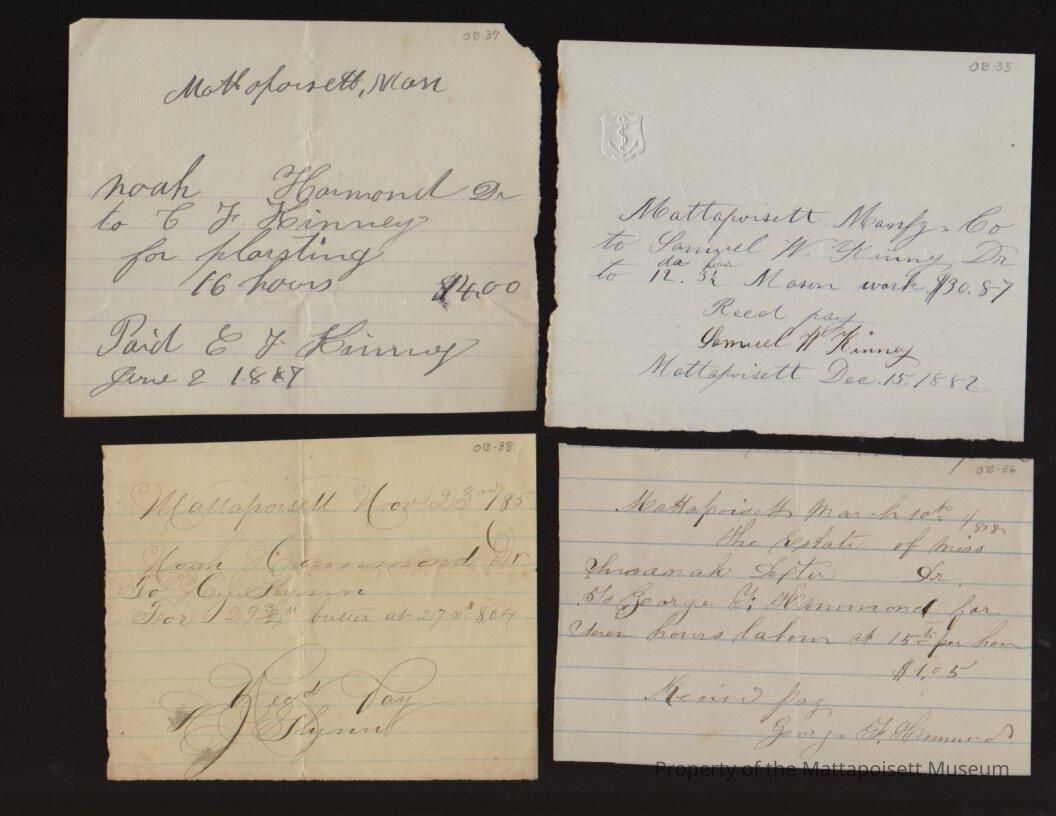 OB-37
Mattapoisett, Mass
noah Hamond Dr
to C F. Kinney
for plarsting
16 hours $4.00
Paid C F. Kinney
June 2 1887
OB-35
Mattapoisett Manfg. Co
to Samuel W. Kinny Dr
da hour
to 12. 3½ Mason work $30.87
Recd pay
Samuel W Kinney
Mattapoisett Dec. 15. 1882
OB-38
Mattapoisett Nov 23rd 185
Noah Hammond Dr
To H. J. Flynn
For 29¾ butter at 27¢ $804
Recd Pay
H J Flynn
OB-36
Mattapoisett March 10th 1888
The Estate of Miss
Dr.
To George F. Hammond for
Seven hours labour at 15cts per hour
$1.05
Received pay
George F. Hammond
Property of the Mattapoisett Museum